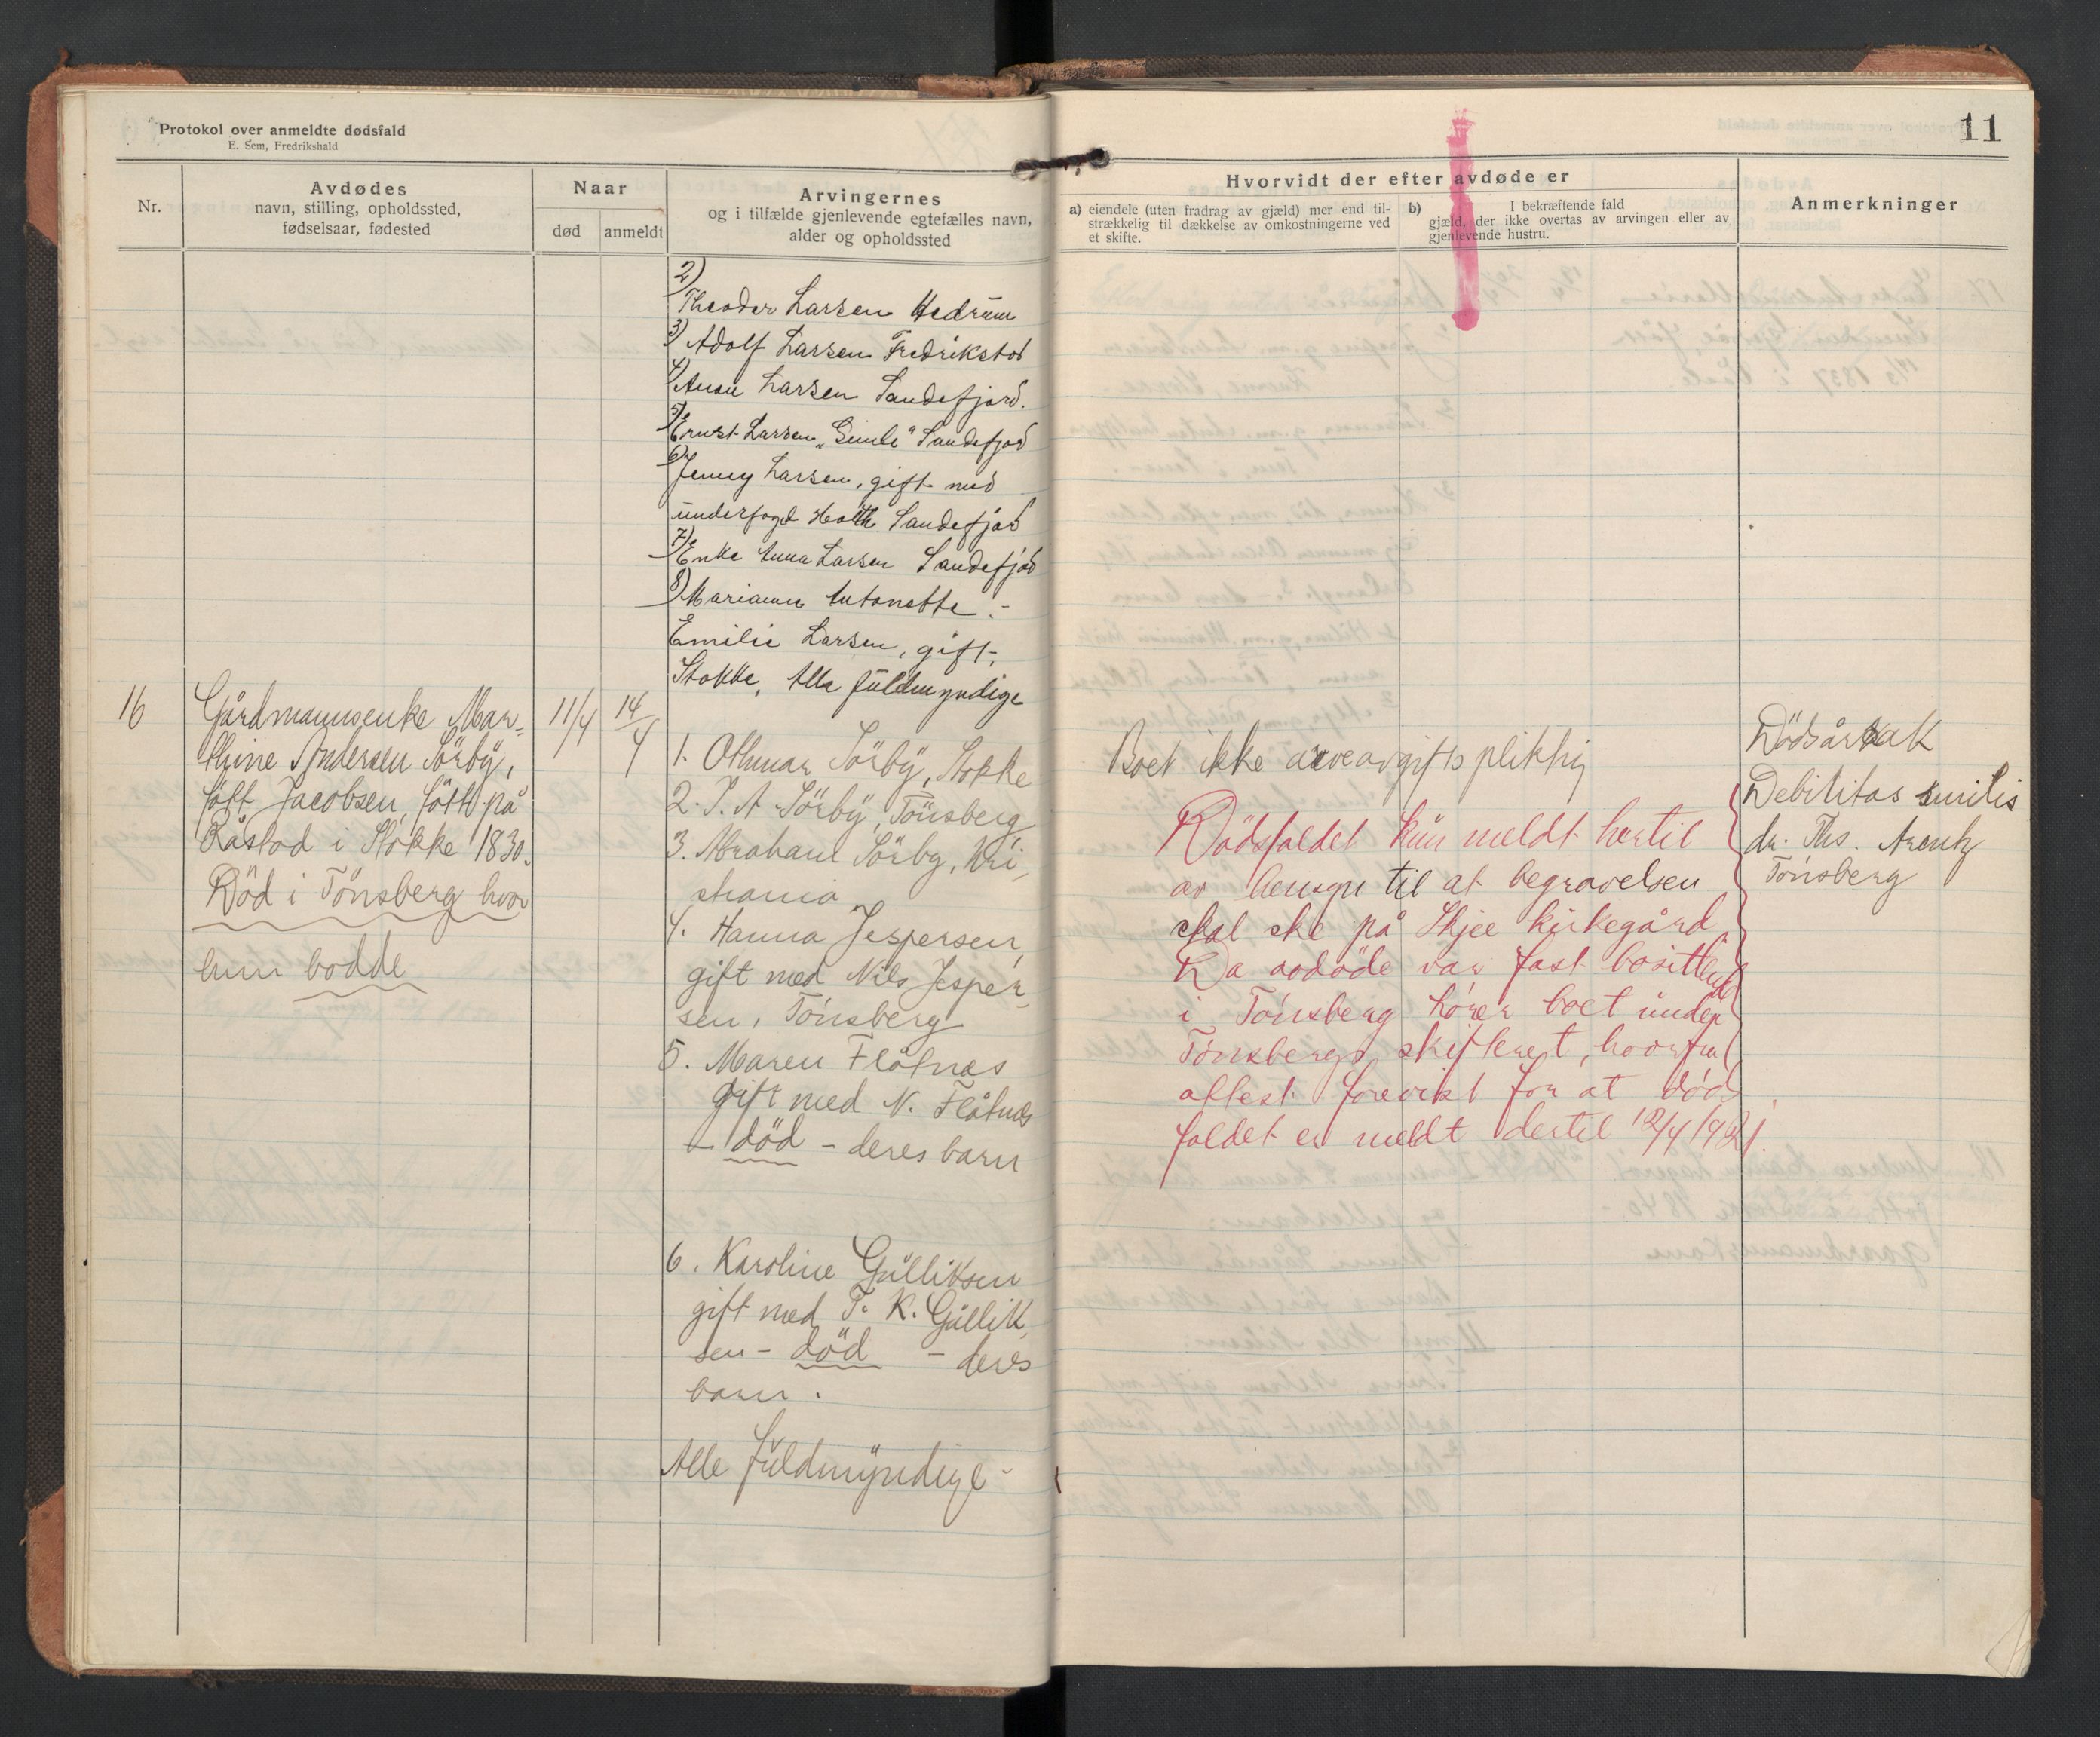 Protokol over anmeldte dødsfald
E. Sem, Fredrikshald
11
Nr.
Avdødes
navn, stilling, opholdssted,
fødselsaar, fødested
Naar
død
anmeldt
Arvingernes
og i tilfælde gjenlevende egtefælles navn,
alder og opholdssted
Hvorvidt der efter avdøde er
a) eiendele (uten fradrag av gjæld) mer end til-
strækkelig til dækkelse av omkostningerne ved
et skifte.
b) I bekræftende fald
gjæld, der ikke overtas av arvingen eller av
gjenlevende hustru.
Anmerkninger
2)
Theodor Larsen Hedrum
3) Adolf Larsen Fredrikstad
4) Anna Larsen Sandefjord.
5) Ernst Larsen "Gimle" Sandefjord
6) Jenny Larsen, gift med
underfogd Holth Sandefjord
7) Enke Anna Larsen Sandefjord
8) Marianne Antonette -
Emilie Larsen, gift,
Stokke, Alle fuldmyndige
16
Gårdmannsenke Mar-
thine Andersen Sörby,
fött Jacobsen, fött på
Råstad i Stokke 1830.
Död i Tönsberg hvor
hun bodde
11/4
14/4
1. Othmar Sörby, Stokke
2. J. A. Sörby, Tönsberg
3. Abraham Sörby, Kri-
stiania
4. Hanna Jespersen,
gift med Nils Jesper-
sen, Tönsberg
5. Maren Flåtnes
gift med N. Flåtnes
- död - deres barn
6. Karoline Gulliksen
gift med T. K. Gullik-
sen - död - deres
barn.
Alle fuldmyndige -
Boet ikke arveavgiftspliktig
Dödsfaldet kun meldt hertil
av hensyn til at begravelsen
skal ske på Skjee kirkegård
Da avdöde var fast bosittende
i Tönsberg hörer boet under
Tönsbergs skifterett, hvorfra
attest forevist for at döds
faldet er meldt dertil 12/4 1921.
Dödsårsak
Debilitas senilis
dr. Ths. Arentz
Tönsberg